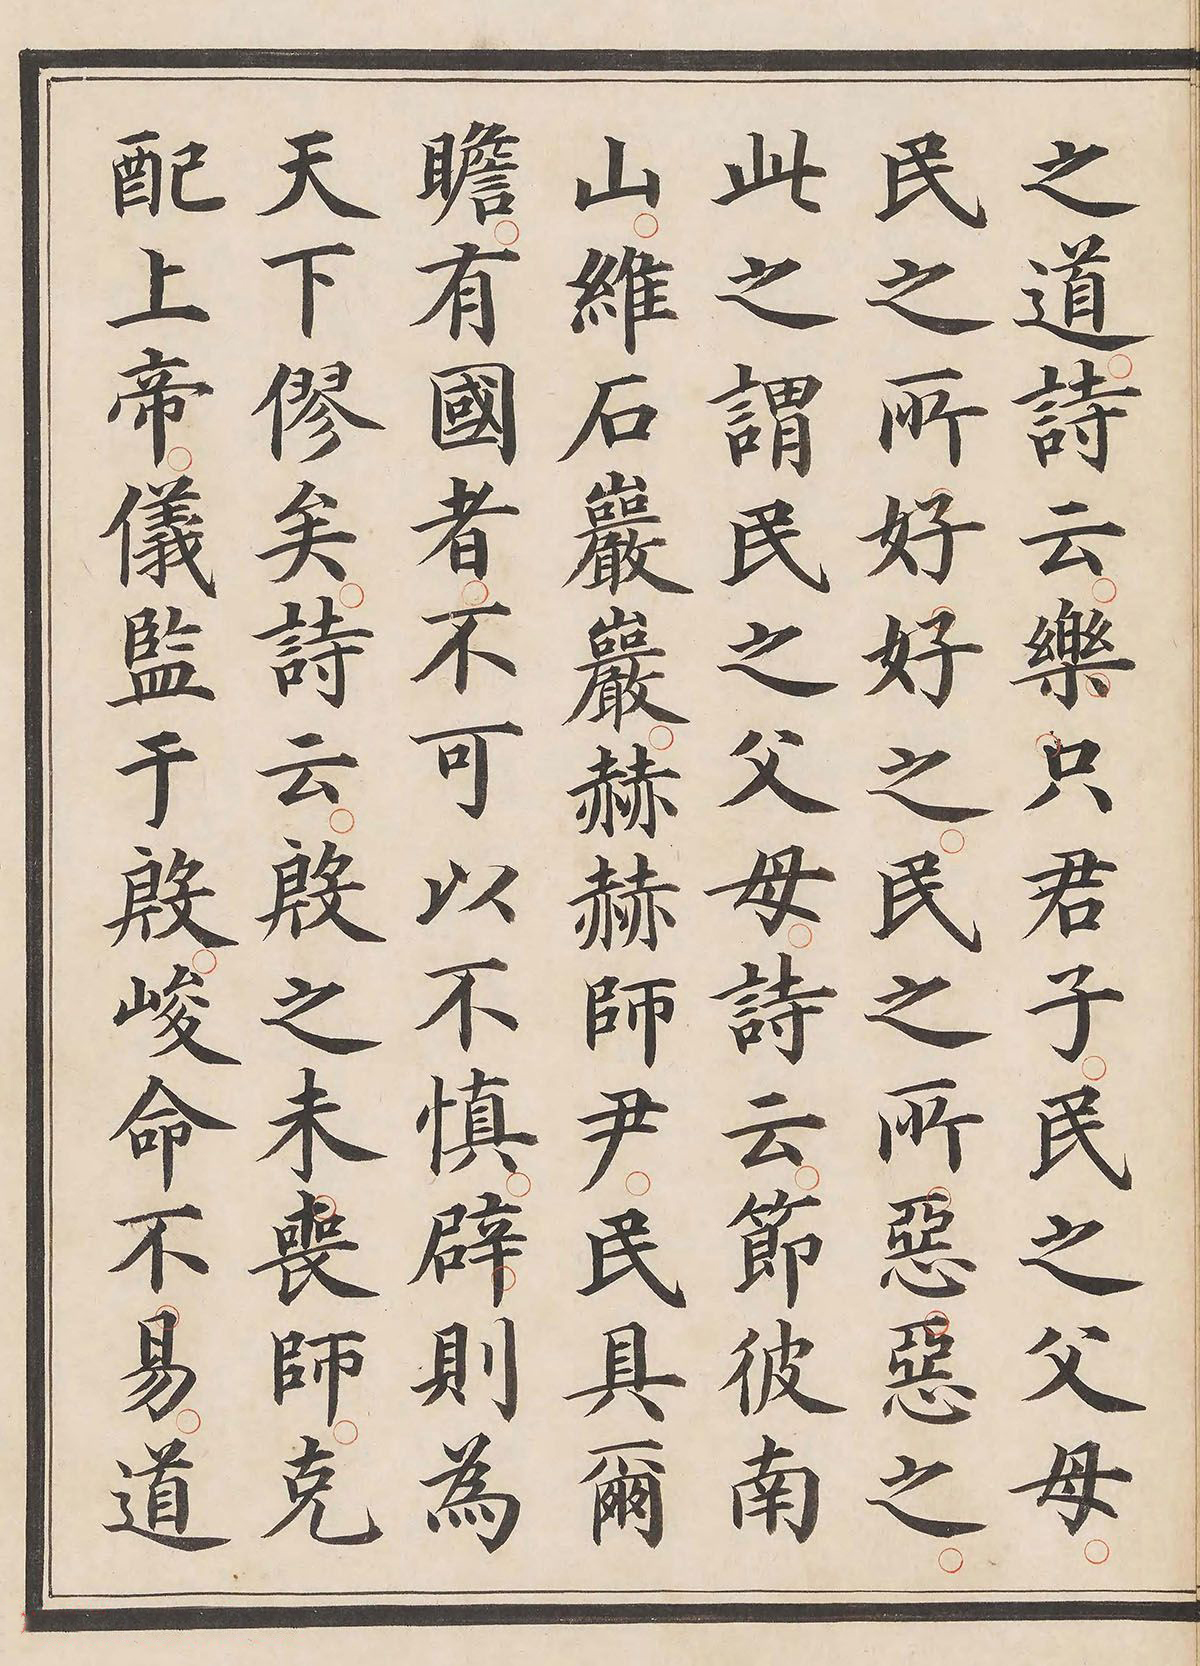 之道詩云樂只君子民之父母
民之所好好之民之所惡惡之
此之謂民之父母詩云節彼南
山維石巖巖赫赫師尹民具爾
瞻有國者不可以不慎辟則為
天下僇矣詩云殷之未喪師克
配上帝儀監于殷峻命不易道